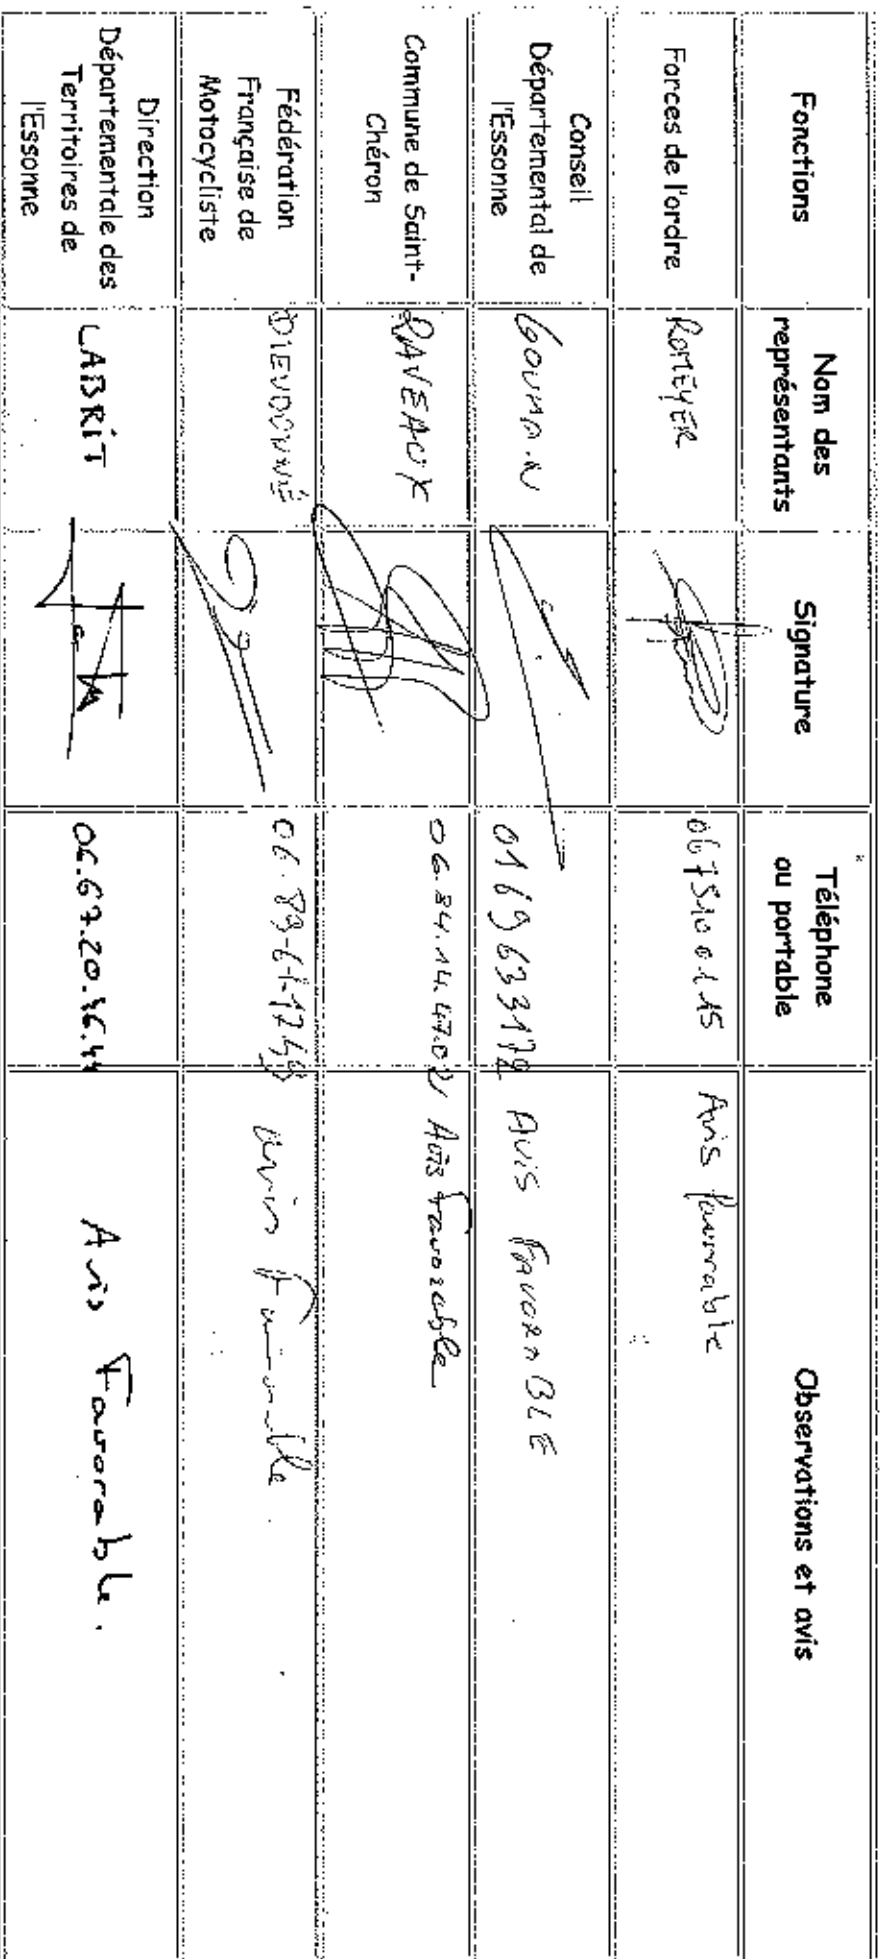 Fonctions
Nom des
représentants
Signature
Téléphone
ou portable
Observations et avis
Forces de l'ordre
ROMEYER
Avis favorable
Conseil
Départemental de
l'Essonne
GOUMAN
0169633172
AVIS FAVORABLE
Commune de Saint-
Chéron
RAVEAUX
06.84.14.47.02
Avis Favorable
Fédération
Française de
Motocycliste
DIEUDONNÉ
avis favorable.
Direction
Départementale des
Territoires de
l'Essonne
LABRIT
Avis Favorable.